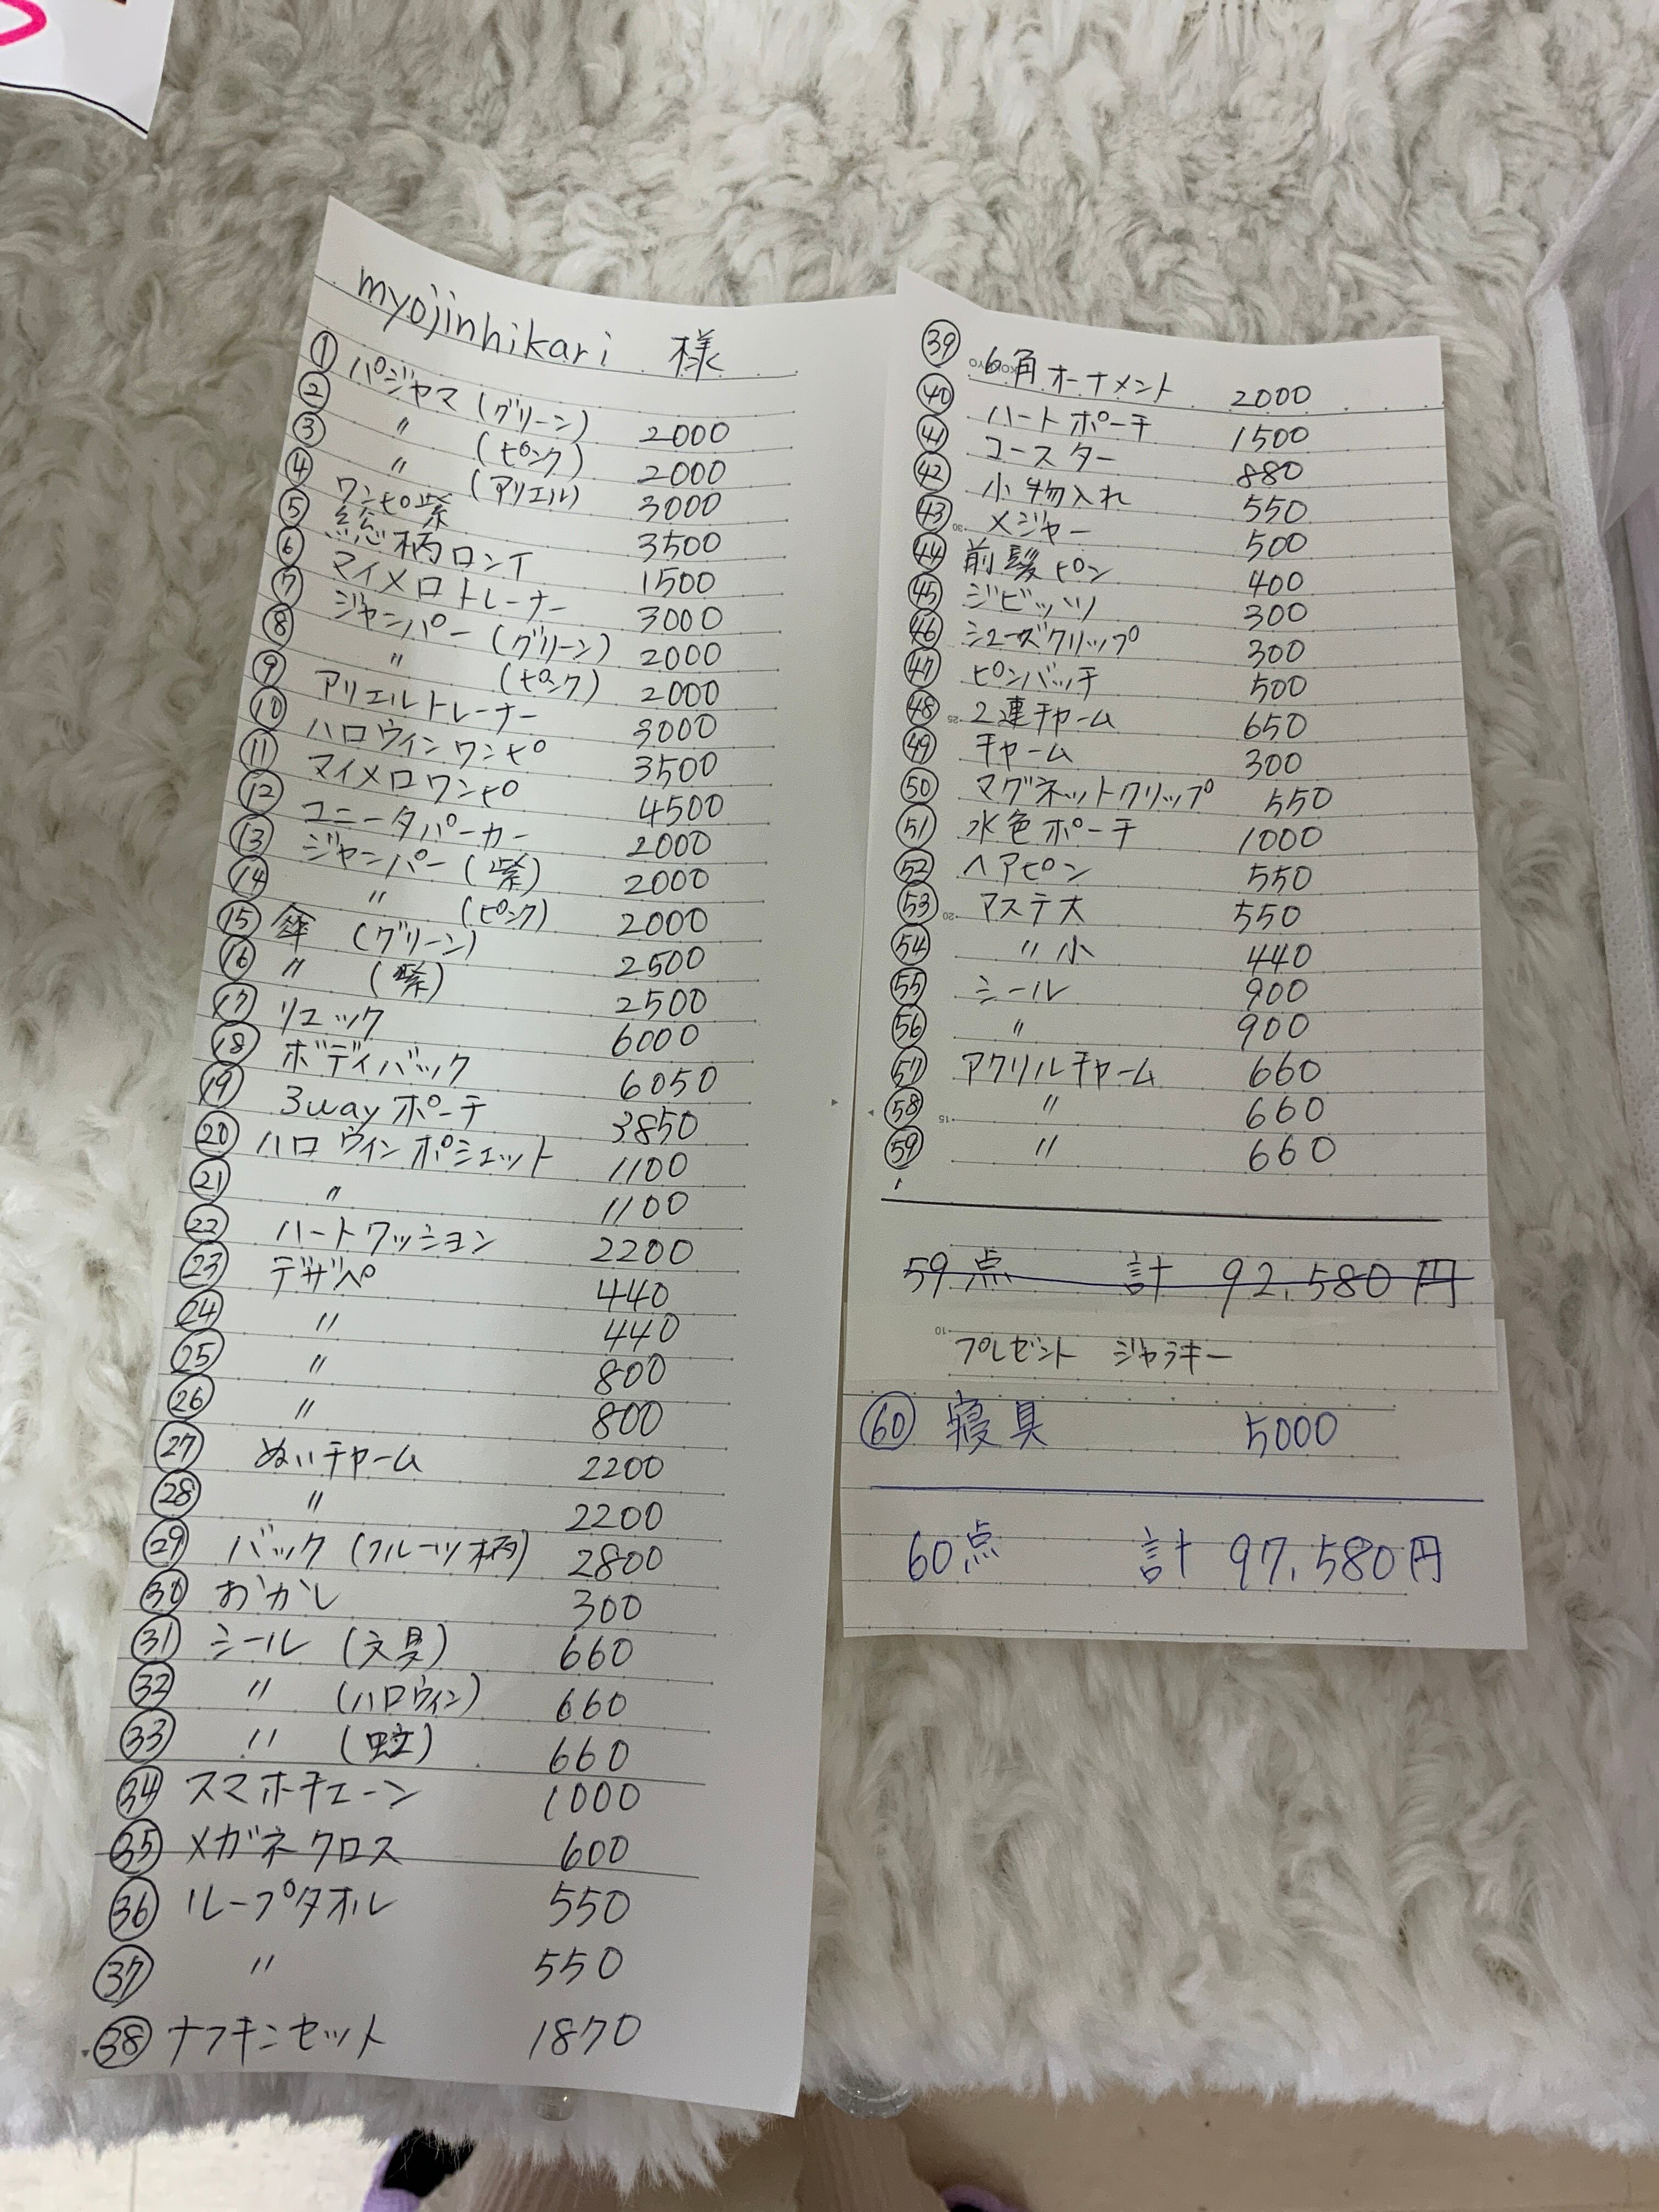 myojinhikari 様
① パジャマ(グリーン) 2000
② 〃 (ピンク) 2000
③ 〃 (アリエル) 3000
④ ワンピ紫 3500
⑤ 総柄ロンT 1500
⑥ マイメロトレーナー 3000
⑦ ジャンパー(グリーン) 2000
⑧ 〃 (ピンク) 2000
⑨ アリエルトレーナー 3000
⑩ ハロウィンワンピ 3500
⑪ マイメロワンピ 4500
⑫ ユニータパーカー 2000
⑬ ジャンパー(紫) 2000
⑭ 〃 (ピンク) 2000
⑮ 傘 (グリーン) 2500
⑯ 〃 (紫) 2500
⑰ リュック 6000
⑱ ボディバック 6050
⑲ 3wayポーチ 3850
⑳ ハロウィンポシェット 1100
㉑ 〃 1100
㉒ ハートクッション 2200
㉓ デザペ 440
㉔ 〃 440
㉕ 〃 800
㉖ 〃 800
㉗ ぬいチャーム 2200
㉘ 〃 2200
㉙ バック(フルーツ柄) 2800
㉚ おかし 300
㉛ シール(文具) 660
㉜ 〃 (ハロウィン) 660
㉝ 〃 660
㉞ スマホチェーン 1000
㉟ メガネクロス 600
㊱ ループタオル 550
㊲ 〃 550
㊳ ナフキンセット 1870
㊴ 6角オーナメント 2000
㊵ ハートポーチ 1500
㊶ コースター 880
㊷ 小物入れ 550
㊸ メジャー 500
㊹ 前髪ピン 400
㊺ ジビッツ 300
㊻ シューズクリップ 300
㊼ ピンバッチ 500
㊽ 2連チャーム 650
㊾ チャーム 300
㊿ マグネットクリップ 550
51 水色ポーチ 1000
52 ヘアピン 550
53 アステ大 550
54 〃小 440
55 シール 900
56 〃 900
57 アクリルチャーム 660
58 〃 660
59 〃 660
59点 計 92,580円
プレゼント ジャラキー
60 寝具 5000
60点 計 97,580円